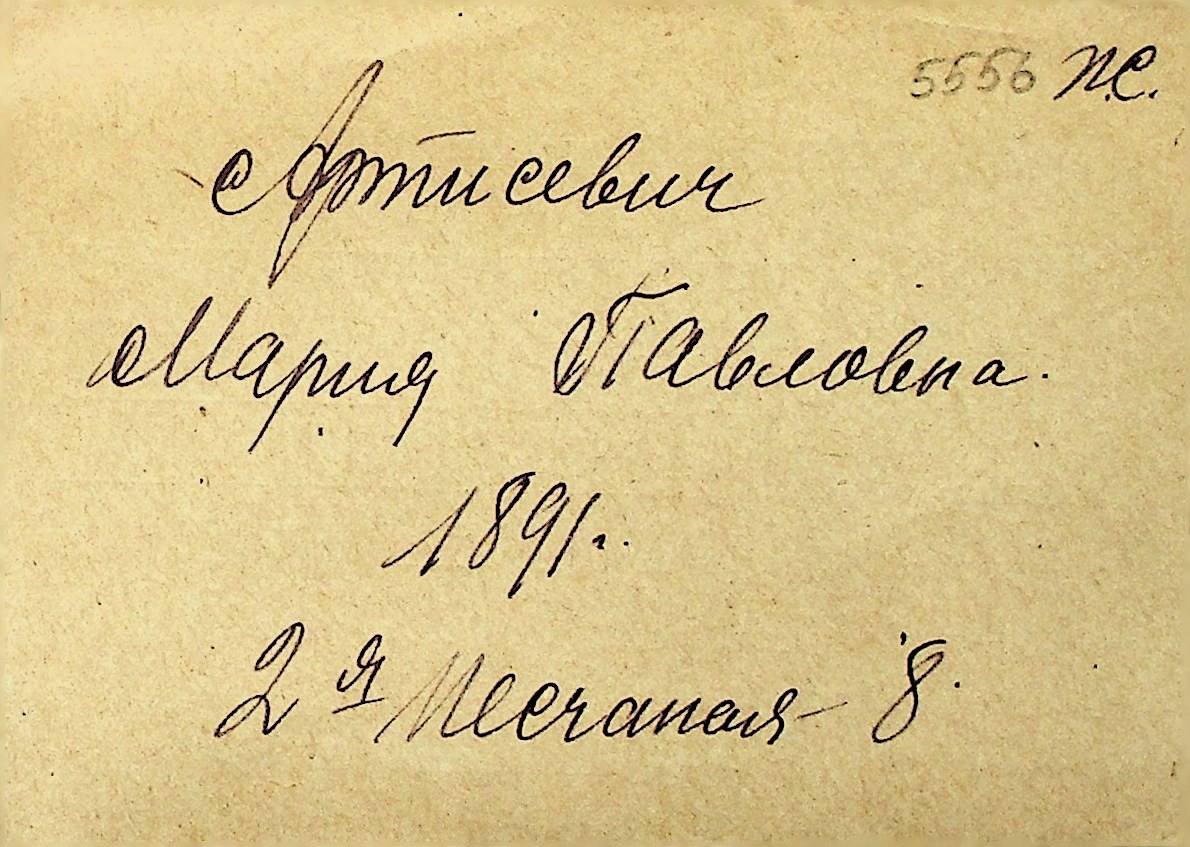 5556 П.С.
Артисевич
Мария Павловна.
1891г.
2я Песчаная 8.